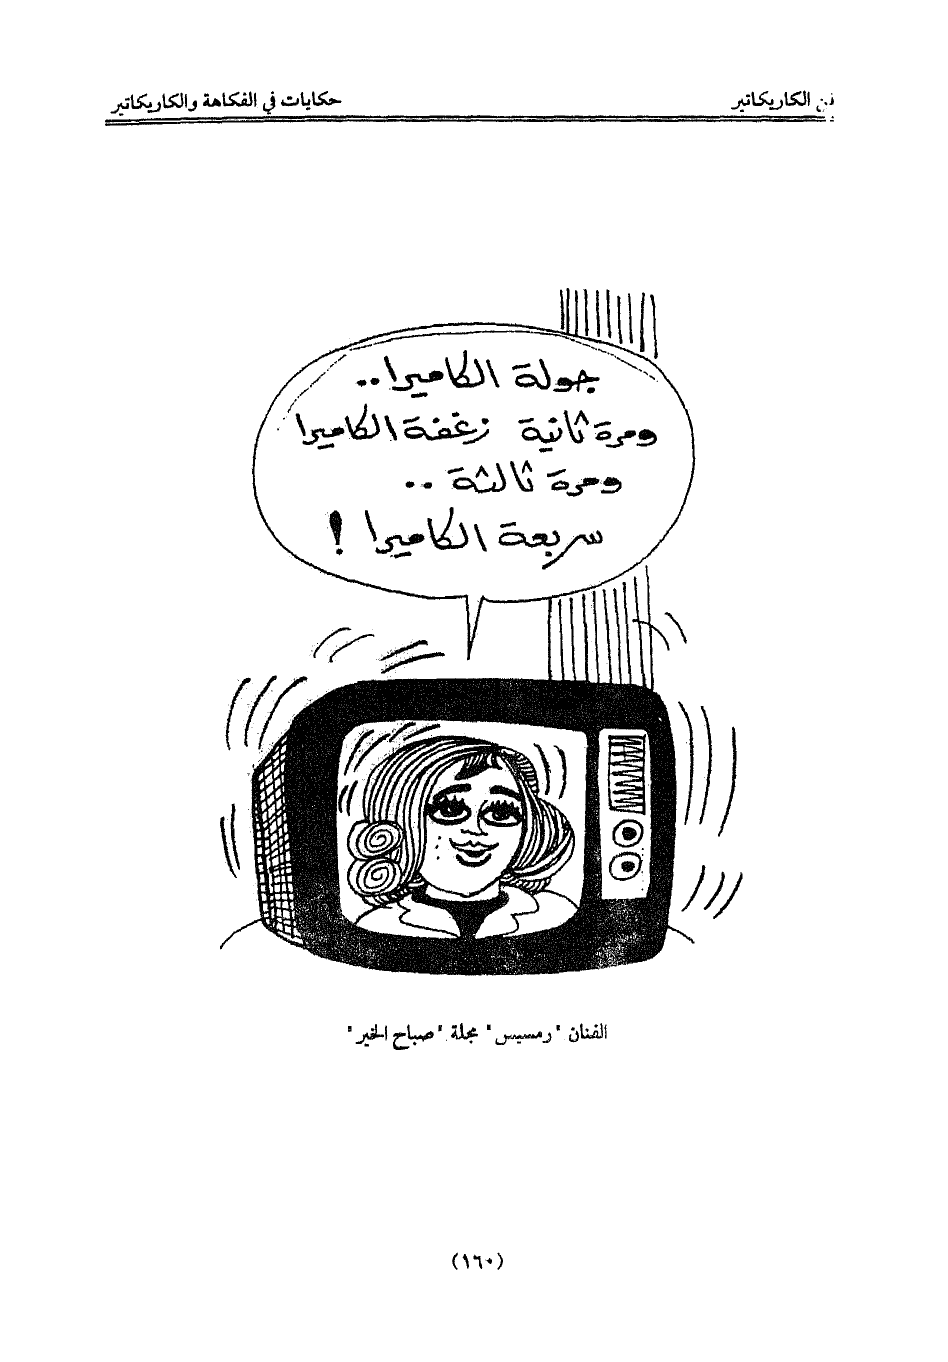 فن الكاريكاتير
حكايات في الفكاهة والكاريكاتير
جولة الكاميرا..
ومرة ثانية زغفة الكاميرا
ومرة ثالثة ..
سربعة الكاميرا !
الفنان "رمسيس" مجلة "صباح الخير"
(١٦٠)